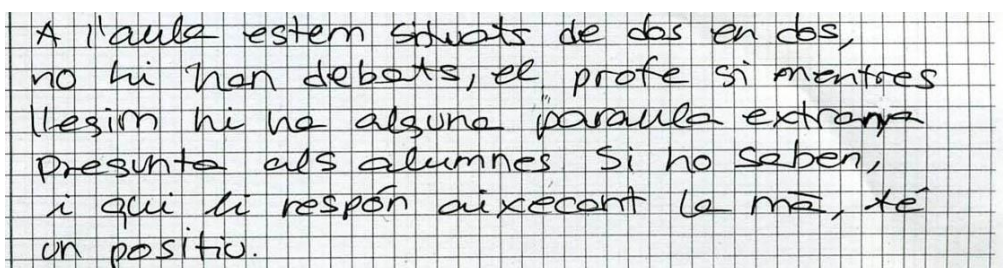 A l'aula estem situats de dos en dos,
no hi han debats, el profe si mentres
llegim hi ha alguna paraula extranya
pregunta als alumnes si ho saben,
i qui li respón aixecant la mà, té
un positiu.